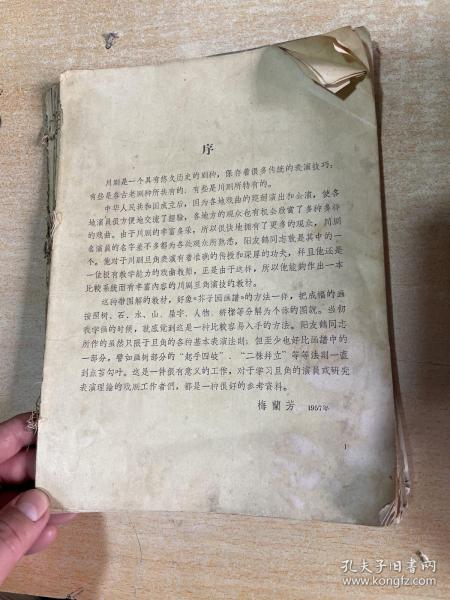 序
川剧是一个具有悠久历史的剧种，保存着很多传统的表演技巧；
有些是各古老剧种所共有的，有些是川剧所特有的。
中华人民共和国成立后，因为各地戏曲的规模演出和会演，使各
地演员很方便地交流了经验，各地方的观众也有机会欣赏了多种多样
的戏曲。由于川剧的丰富多采，所以很快地拥有了更多的观众，川剧
名演员的名字差不多都为各处观众所熟悉，阳友鹤同志就是其中的一
个。他对于川剧旦角表演有着准确的传授和深厚的功夫，并且他还是
一位很有教学能力的戏曲教师，正是由于这样，所以他能夠作出一本
比较系统而有丰富内容的川剧旦角演技的教材。
这种带图解的教材，好象“芥子园画譜”的方法一样，把成幅的画
按照树、石、水、山、屋宇、人物、桥樑等分解为个体的图說。当初
我学画的时候，就感觉到这是一种比較容易入手的方法。阳友鹤同志
所作的虽然只限于旦角的各种基本表演法则；但至少也好比画譜中的
一部分，譬如画树部分的“起手四岐”、“二株并立”等等法则一直
到点苔勾叶。这是一件很有意义的工作，对于学习旦角的演員或研究
表演理論的戏剧工作者們，都是一种很好的参考資料。
梅蘭芳 1957年
1
孔夫子旧书网
www.kongfz.com